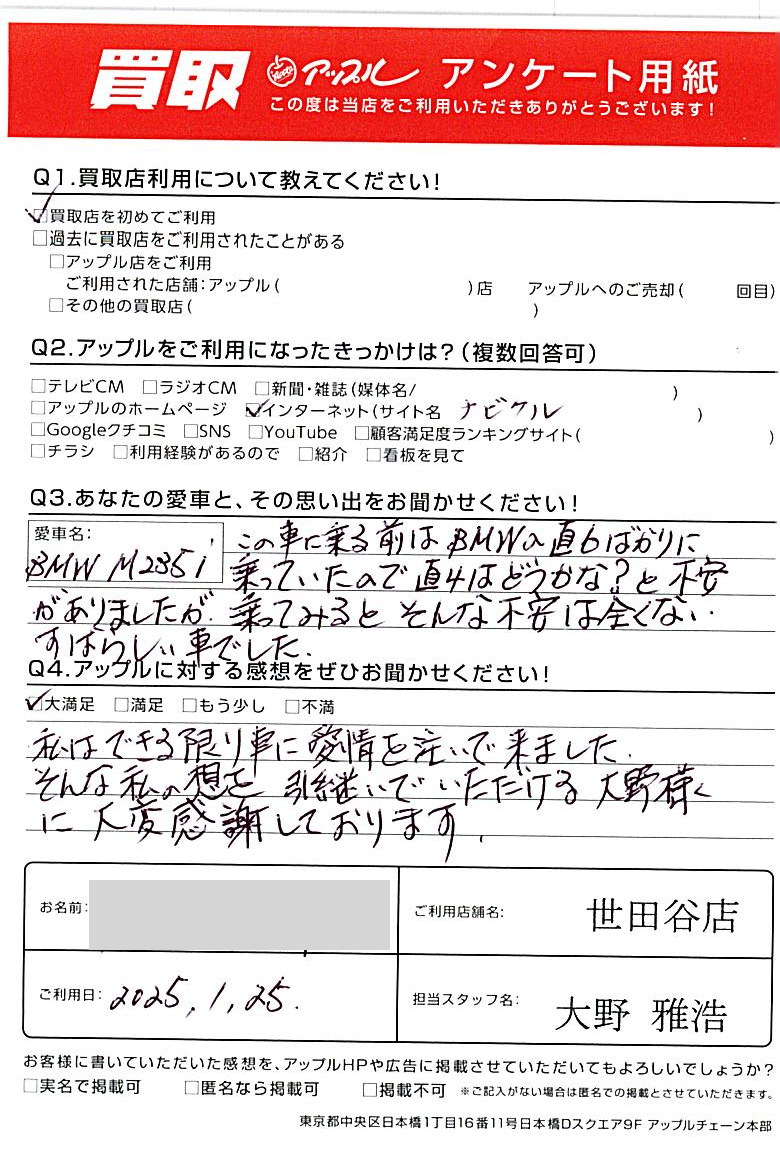 買取 アップル アンケート用紙
この度は当店をご利用いただきありがとうございます!
Q1.買取店利用について教えてください!
☑買取店を初めてご利用
□過去に買取店をご利用されたことがある
□アップル店をご利用
ご利用された店舗:アップル( )店 アップルへのご売却( 回目)
□その他の買取店( )
Q2.アップルをご利用になったきっかけは?(複数回答可)
□テレビCM □ラジオCM □新聞・雑誌(媒体名/ )
□アップルのホームページ ☑インターネット(サイト名 ナビクル )
□Googleクチコミ □SNS □YouTube □顧客満足度ランキングサイト( )
□チラシ □利用経験があるので □紹介 □看板を見て
Q3.あなたの愛車と、その思い出をお聞かせください!
愛車名: この車に乗る前はBMWの直6ばかりに
BMW M235i 乗っていたので直4はどうかな?と不安
がありましたが、乗ってみるとそんな不安は全くない
すばらしい車でした.
Q4.アップルに対する感想をぜひお聞かせください!
☑大満足 □満足 □もう少し □不満
私はできる限り車に愛情を注いで来ました.
そんな私の想を引き継いでいただける大野様
に大変感謝しております.
お名前: ご利用店舗名: 世田谷店
ご利用日: 2025.1.25. 担当スタッフ名: 大野 雅浩
お客様に書いていただいた感想を、アップルHPや広告に掲載させていただいてもよろしいでしょうか?
□実名で掲載可 □匿名なら掲載可 □掲載不可 ※ご記入がない場合は匿名での掲載とさせていただきます。
東京都中央区日本橋1丁目16番11号日本橋Dスクエア9F アップルチェーン本部